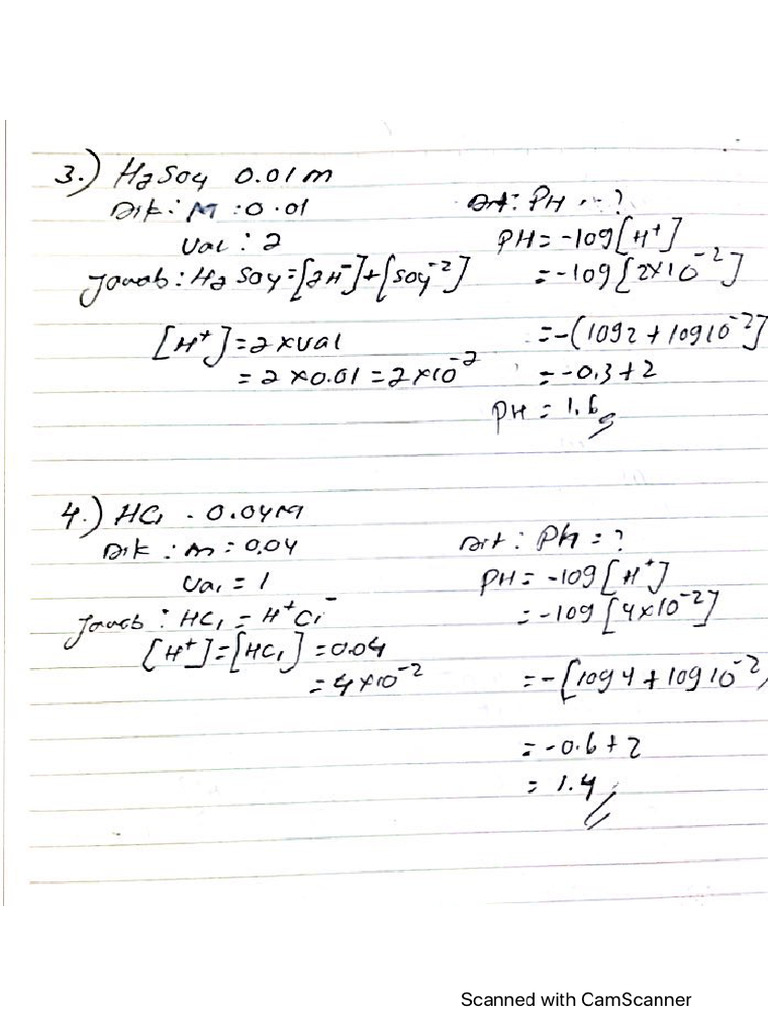 3.) H2SO4 0.01 m
Dik : M : 0.01
Val : 2
Jawab : H2SO4 = [2H⁻] + [SO4⁻²]
[H⁺] = 2 x val
= 2 x 0.01 = 2 x 10⁻²
Dit : PH . . ?
PH = -log [H⁺]
= -log [2x10⁻²]
= -(log 2 + log 10⁻²]
= -0.3 + 2
PH = 1.6
4.) HCl - 0.04 M
Dik : m = 0.04
Val = 1
Jawab : HCl = H⁺Cl⁻
[H⁺] = [HCl] = 0.04
= 4 x 10⁻²
Dit : PH = ?
PH = -log [H⁺]
= -log [4x10⁻²]
= -[log 4 + log 10⁻²)
= -0.6 + 2
= 1.4
Scanned with CamScanner